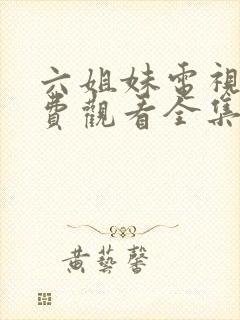 六姐妹電視
費觀看全集
黄藝馨